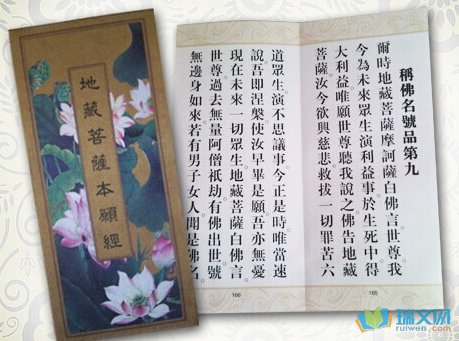 地藏菩薩本願經
稱佛名號品第九
爾時地藏菩薩摩訶薩白佛言。世尊。我
今為未來眾生。演利益事。於生死中。得
大利益。唯願世尊。聽我說之。佛告地藏
菩薩。汝今欲興慈悲。救拔一切罪苦六
道眾生。演不思議事。今正是時。唯當速
說。吾即涅槃。使汝早畢是願。吾亦無憂
現在未來一切眾生。地藏菩薩白佛言。
世尊。過去無量阿僧祇劫。有佛出世。號
無邊身如來。若有男子女人。聞是佛名。
166
165
瑞文网
ruiwen.com